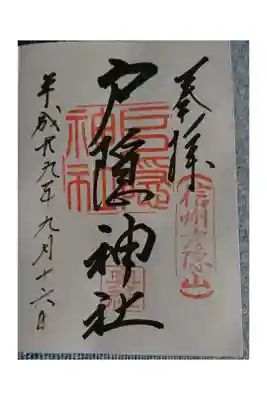 奉拝
信州戸隠山
戸隠神社
戸隠神社
平成廿九年九月十六日